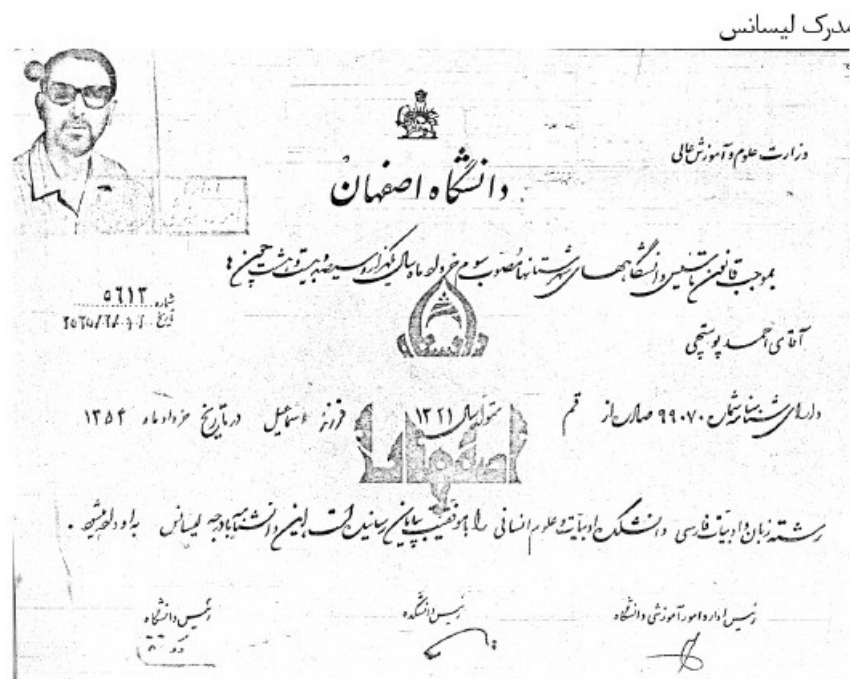 مدرک لیسانس
وزارت علوم و آموزش عالی
دانشگاه اصفهان
بموجب قانون تأسیس دانشگاههای شهرستانها مصوب سوم خرداد ماه سال یکهزار و سیصد و بیست و هشت چون :
شماره ۵۶۱۳
تاریخ
آقای احمد پوستچی
دارای شناسنامه شماره ۹۹۰۷۰ صادره از قم متولد سال ۱۳۲۱ فرزند اسماعیل در تاریخ خرداد ماه ۱۳۵۴
دانشگاه
اصفهان
رشته زبان و ادبیات فارسی دانشکده ادبیات و علوم انسانی را با موفقیت بپایان رسانیده است این دانشنامه با درجه لیسانس به او داده میشود .
رئیس اداره امور آموزشی دانشگاه رئیس دانشکده رئیس دانشگاه